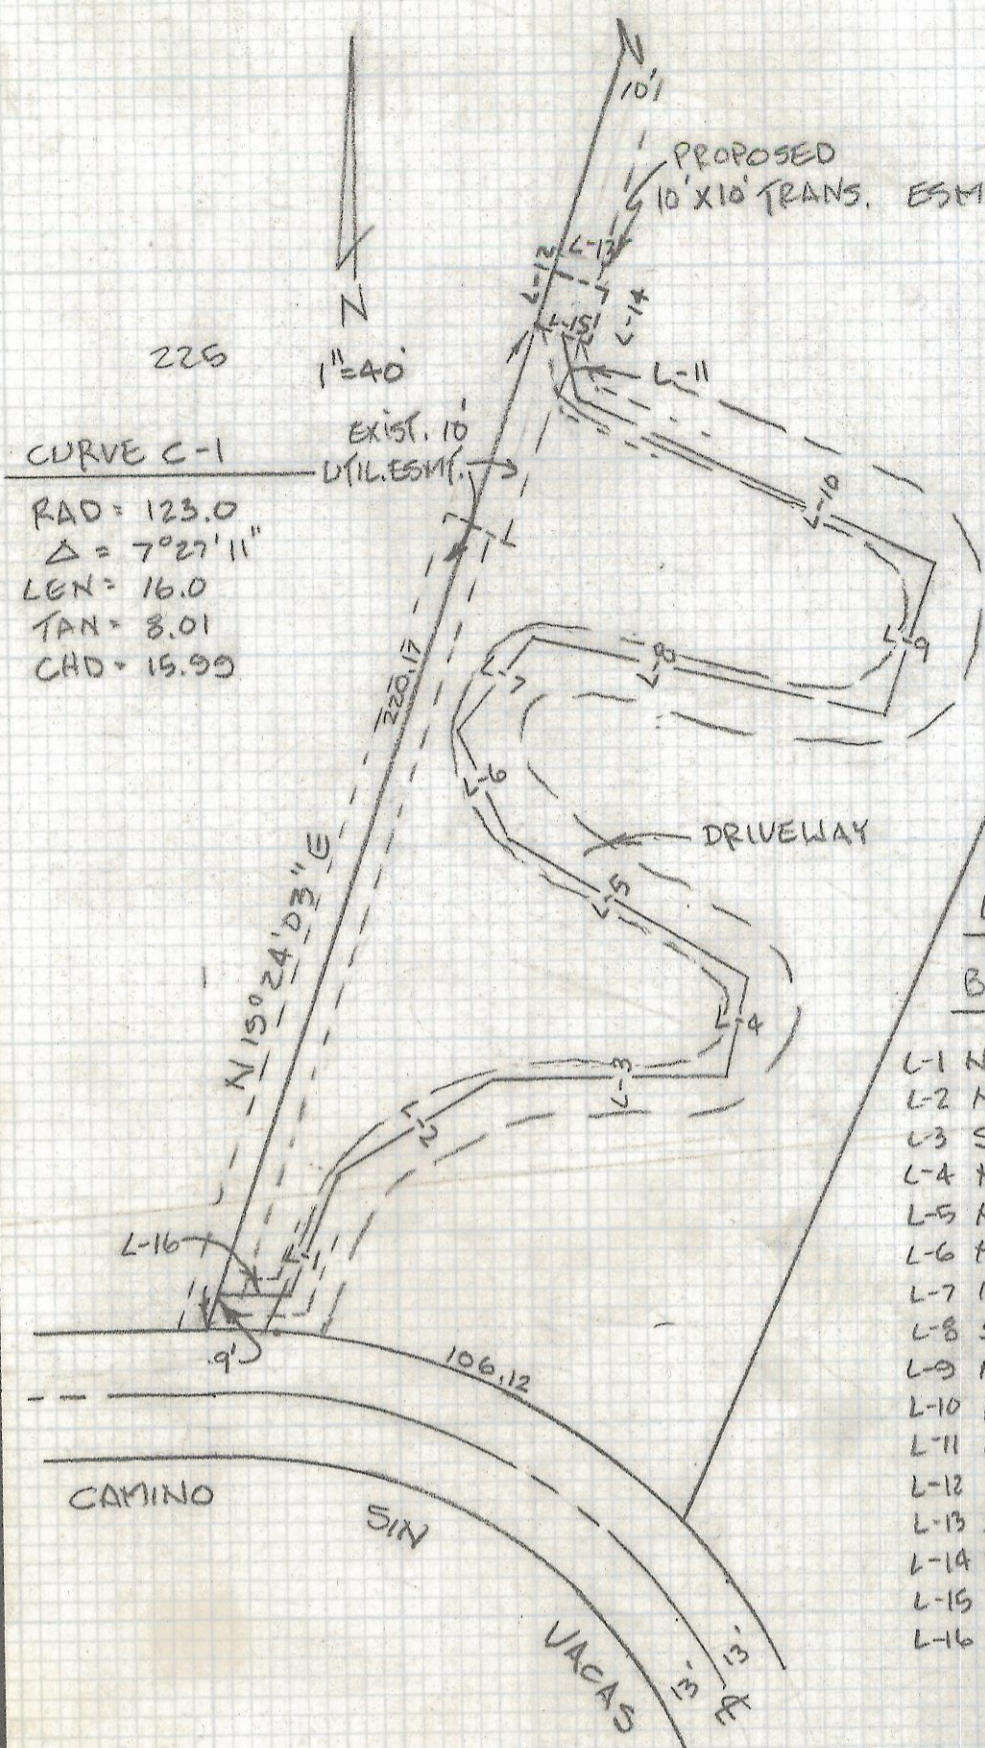 N
10'
PROPOSED
10'X10' TRANS. ESM
L-13
L-12
L-14
L-15
L-11
N
225
1"=40'
EXIST. 10'
UTIL. ESMT.
CURVE C-1
RAD = 123.0
Δ = 7°27'11"
LEN = 16.0
TAN = 8.01
CHD = 15.99
L-10
L-9
L-8
L-7
220.17
L-6
DRIVEWAY
L-5
N 15° 24' 03" E
L-4
L-3
L-2
L-1
L-16
.9'
106.12
CAMINO
SIN
VACAS
13'
13'
B
L-1 N
L-2 N
L-3 S
L-4 N
L-5 N
L-6 N
L-7
L-8 S
L-9 N
L-10
L-11
L-12
L-13
L-14
L-15
L-16